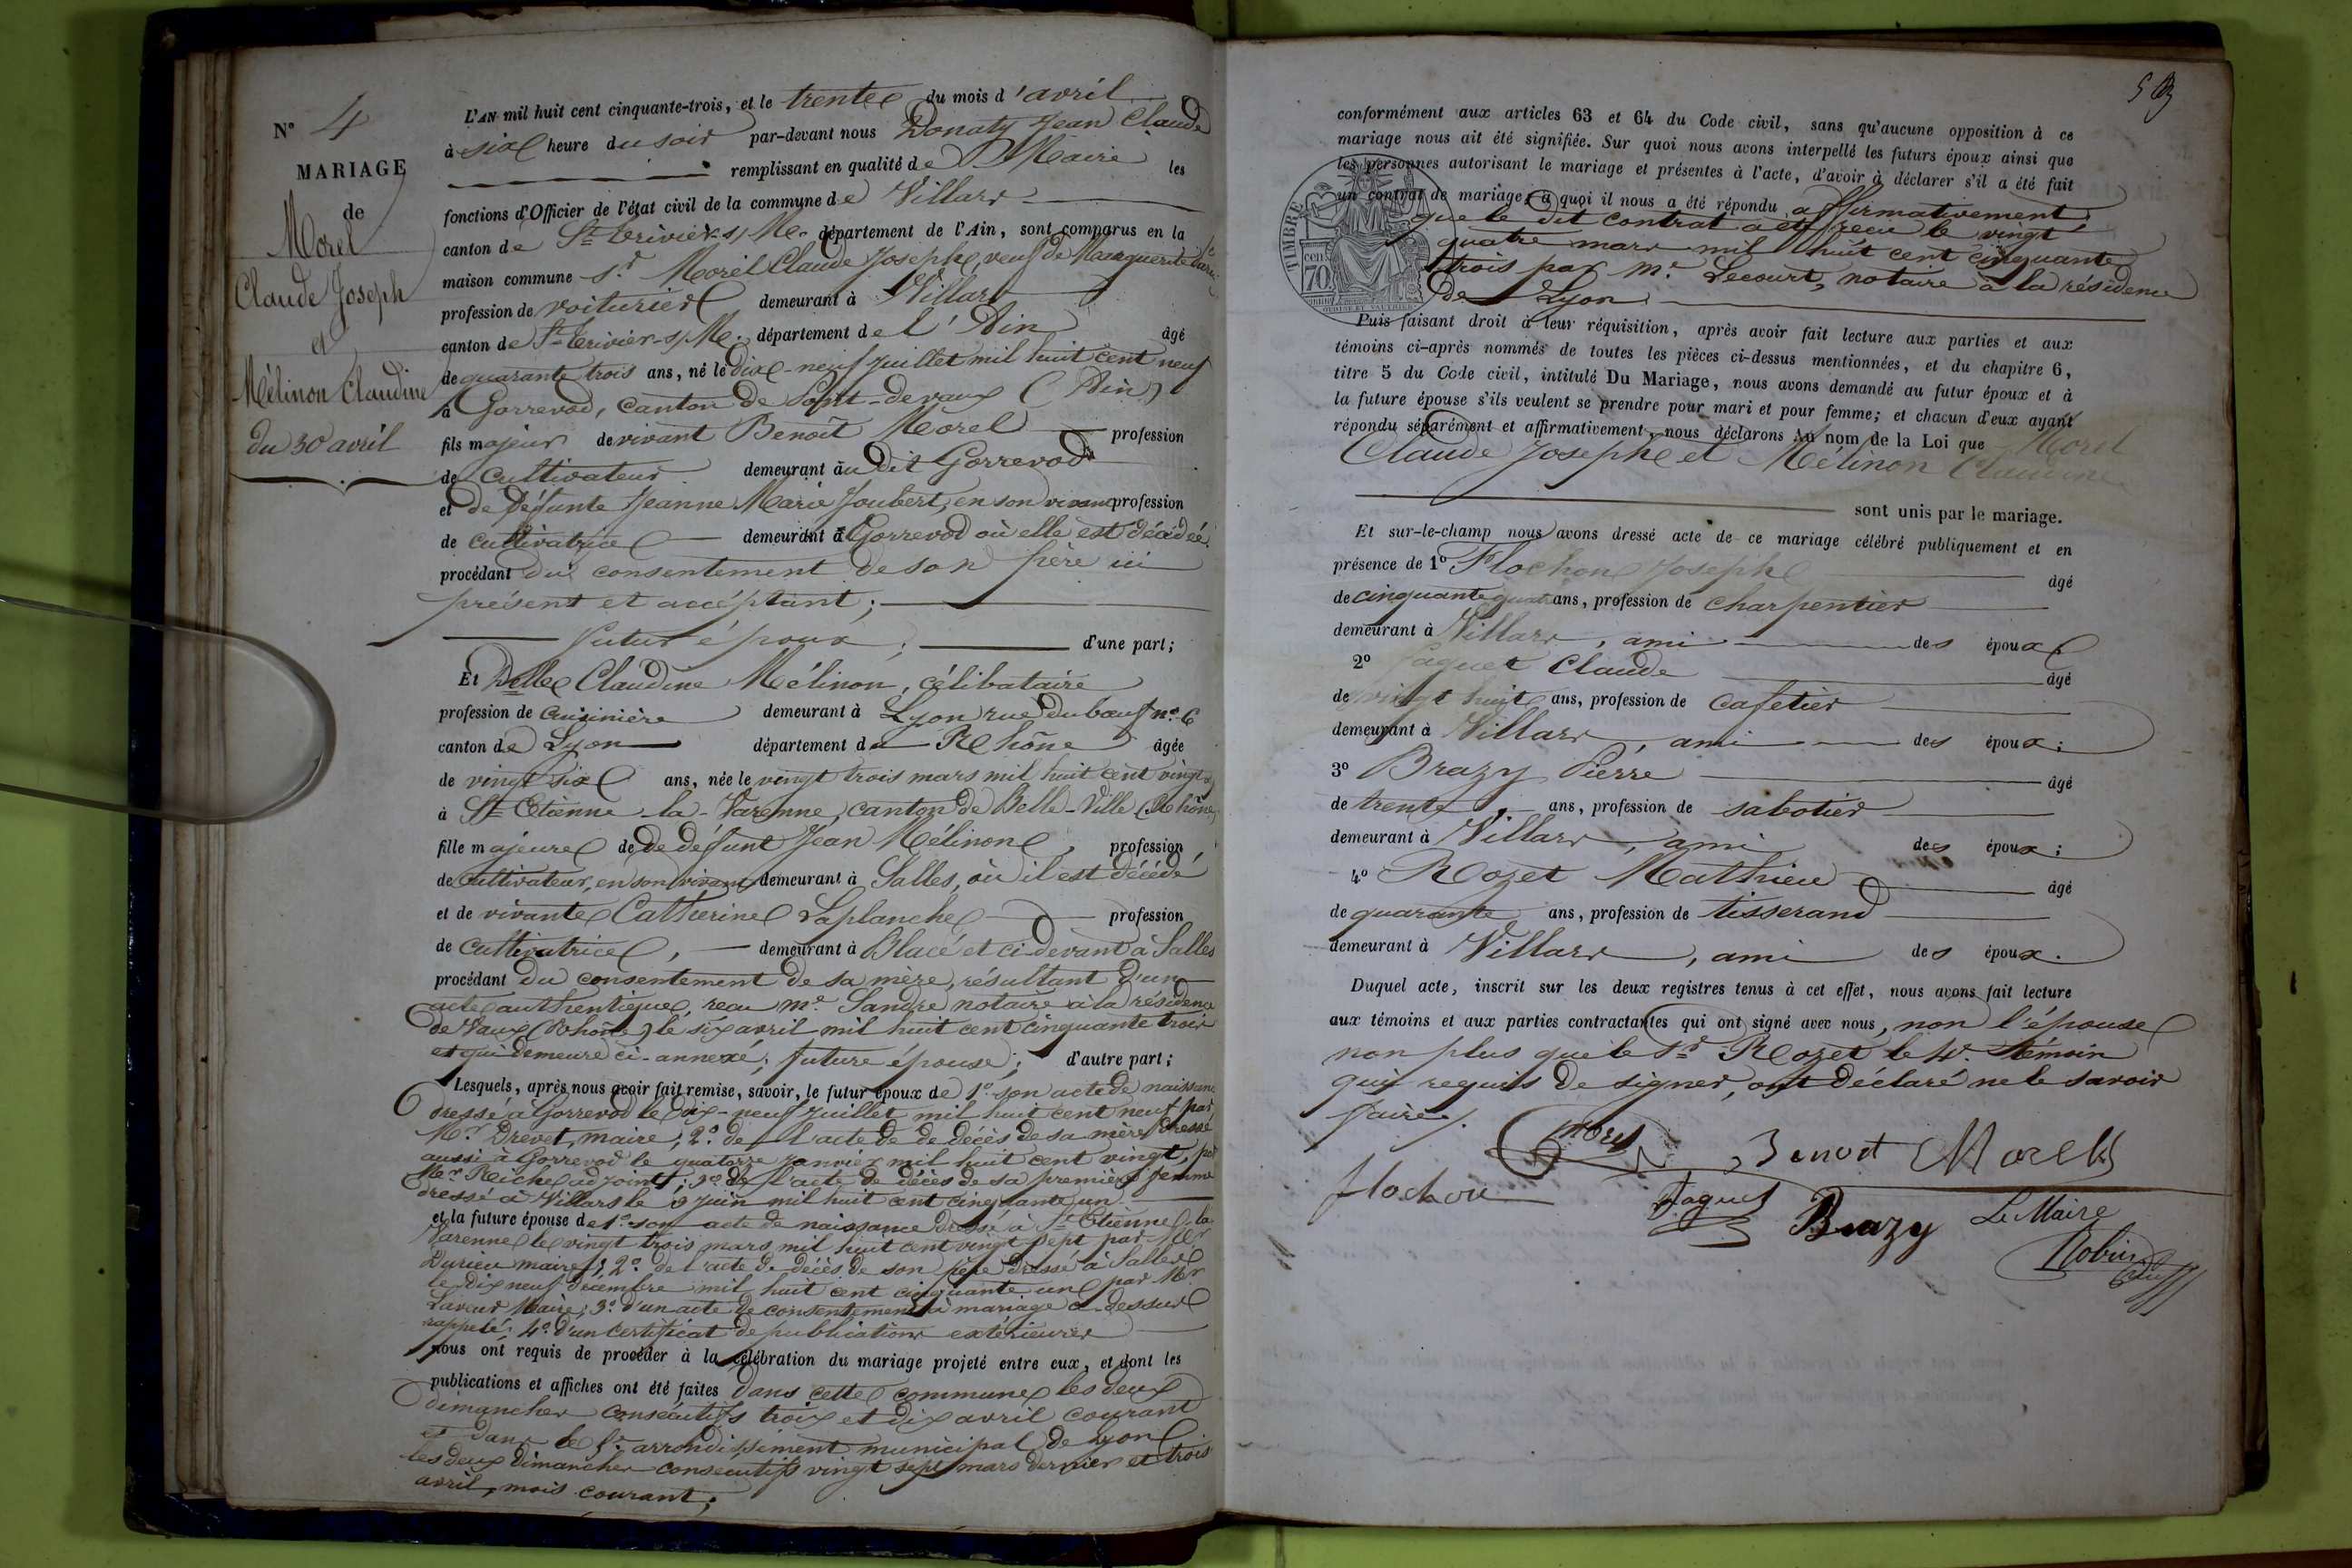 N° 4
MARIAGE
de
Morel
Claude Joseph
et
Mélinon Claudine
du 30 avril
L'AN mil huit cent cinquante-trois, et le trente du mois d'avril
à six heure du soir par-devant nous Donaty Jean Claude
remplissant en qualité de Maire les
fonctions d'Officier de l'état civil de la commune de Villars
canton de St Trivier s/ Me. département de l'Ain, sont comparus en la
maison commune Sr. Morel Claude Joseph, veuf de Marguerite
profession de voiturier demeurant à Villars
canton de St Trivier-s/Me. département de l'Ain âgé
de quarante trois ans, né le dix-neuf juillet mil huit cent neuf
à Gorrevod, canton de Pont-de vaux (Ain)
fils majeur de vivant Benoît Morel profession
de cultivateur demeurant au dit Gorrevod
et de défunte Jeanne Marie Joubert, en son vivant profession
de cultivatrice demeurant à Gorrevod où elle est décédée.
procédant du consentement de son père ici
présent et acceptant;
futur époux; d'une part;
Et Delle Claudine Mélinon, célibataire
profession de cuisinière demeurant à Lyon rue du bœuf n° 6
canton de Lyon département du Rhône âgée
de vingt six ans, née le vingt trois mars mil huit cent vingt
à St Etienne-la-Varenne, canton de Belle-Ville (Rhône)
fille majeure de de défunt Jean Mélinon, profession
de cultivateur, en son vivant demeurant à Salles, où il est décédé
et de vivante Catherine Laplanche profession
de cultivatrice, demeurant à Blacé et ci-devant à Salles
procédant du consentement de sa mère, résultant d'un
acte authentique, reçu Me. Sandre notaire à la résidence
de Vaux (Rhône) le six avril mil huit cent cinquante trois
et qui demeure ci-annexé; future épouse; d'autre part;
Lesquels, après nous avoir fait remise, savoir, le futur époux de 1° son acte de naissance
dressé à Gorrevod le dix-neuf juillet mil huit cent neuf par
Mr. Drevet, maire; 2° de l'acte de de décès de sa mère dressé
aussi à Gorrevod le quatorze janvier mil huit cent vingt, par
Mr. Riche adjoint; 3° de l'acte de décès de sa première femme
dressé à Villars le 9 juin mil huit cent cinquante un
et la future épouse de 1° son acte de naissance dressé à St Etienne-la
Varenne le vingt trois mars mil huit cent vingt-sept par Mr
Durieu maire; 2° de l'acte de décès de son père dressé à Salles
le dix neuf décembre mil huit cent cinquante un par Mr
Maire; 3° d'un acte de consentement à mariage ci-dessus
rappelé; 4° d'un certificat de publications extérieures
nous ont requis de procéder à la célébration du mariage projeté entre eux, et dont les
publications et affiches ont été faites dans cette commune les deux
dimanches consécutifs trois et dix avril courant
et dans le arrondissement municipal de Lyon
les deux dimanches consécutifs vingt sept mars dernier et trois
avril, mois courant;
conformément aux articles 63 et 64 du Code civil, sans qu'aucune opposition à ce
mariage nous ait été signifiée. Sur quoi nous avons interpellé les futurs époux ainsi que
les personnes autorisant le mariage et présentes à l'acte, d'avoir à déclarer s'il a été fait
un contrat de mariage; à quoi il nous a été répondu affirmativement
que le dit contrat a été reçu le vingt
quatre mars mil huit cent cinquante
trois par Me. Lecourt, notaire à la résidence
de Lyon.
TIMBRE
cen.
70
Puis faisant droit à leur réquisition, après avoir fait lecture aux parties et aux
témoins ci-après nommés de toutes les pièces ci-dessus mentionnées, et du chapitre 6,
titre 5 du Code civil, intitulé Du Mariage, nous avons demandé au futur époux et à
la future épouse s'ils veulent se prendre pour mari et pour femme; et chacun d'eux ayant
répondu séparément et affirmativement, nous déclarons Au nom de la Loi que Morel
Claude Joseph et Mélinon Claudine
sont unis par le mariage.
Et sur-le-champ nous avons dressé acte de ce mariage célébré publiquement et en
présence de 1° Flochon Joseph âgé
de cinquante quatre ans, profession de charpentier
demeurant à Villars, ami des époux
2° Paquet Claude âgé
de vingt huit ans, profession de cafetier
demeurant à Villars, ami des époux;
3° Brazy Pierre âgé
de trente ans, profession de sabotier
demeurant à Villars, ami des époux;
4° Rozet Mathieu âgé
de quarante ans, profession de tisserand
demeurant à Villars, ami des époux.
Duquel acte, inscrit sur les deux registres tenus à cet effet, nous avons fait lecture
aux témoins et aux parties contractantes qui ont signé avec nous, non l'épouse
non plus que le Sr Rozet le 4e. témoin
qui requis de signer, ont déclaré ne le savoir
faire.
Morel Benoit Morel
flochon Paquet Brazy Le Maire
Robin